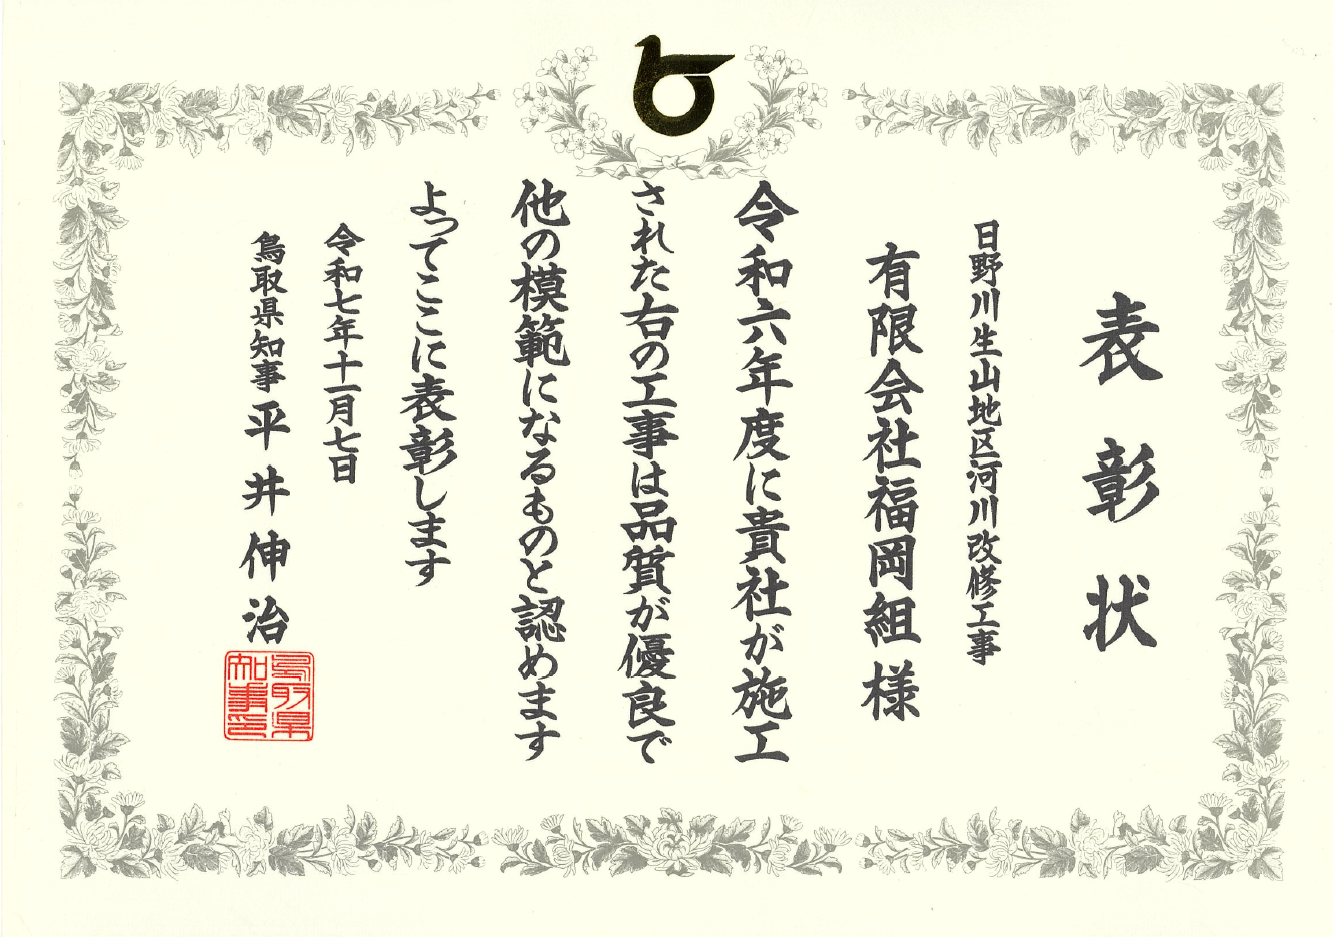 表彰状
日野川生山地区河川改修工事
有限会社福岡組様
令和六年度に貴社が施工
された右の工事は品質が優良で
他の模範になるものと認めます
よってここに表彰します
令和七年十一月七日
鳥取県知事 平井伸治
鳥取県
知事印